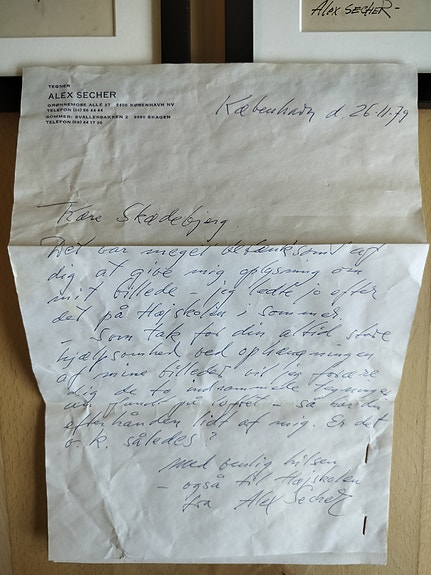 ALEX SECHER-
TEGNER
ALEX SECHER
GRØNNEMOSE ALLE 37 2400 KØBENHAVN NV
TELEFON (01) 56 44 44
SOMMER: SVALLERBAKKEN 2 9990 SKAGEN
TELEFON (08) 44 17 30
København d. 26-11-79
Kære Skædebjerg.
Det var meget betænksomt af
dig at give mig oplysning om
mit billede - jeg ledte jo efter
det på Højskolen i sommer
- Som tak for din altid store
hjælpsomhed ved ophængningen
af mine billeder vil jeg forære
dig de to tegninger
på loftet - så har du
efterhånden lidt af mig. Er det
o.k. således?
med venlig hilsen
- også til Højskolen
fra Alex Secher